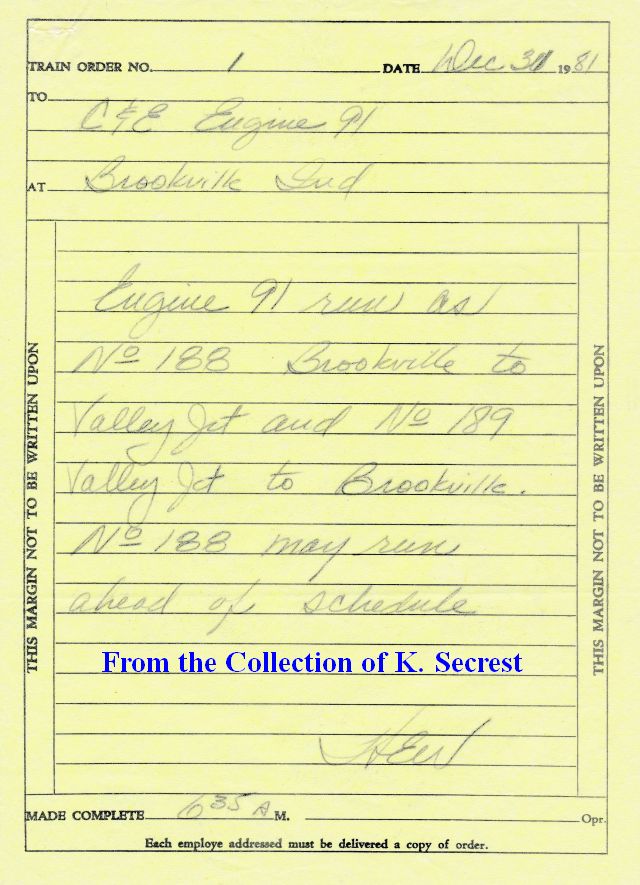 TRAIN ORDER NO. 1 DATE Dec 31 1981
TO
C&E Engine 91
AT Brookville Ind
Engine 91 run as
No 188 Brookville to
Valley Jct and No 189
Valley Jct to Brookville.
No 188 may run
ahead of schedule
From the Collection of K. Secrest
MADE COMPLETE 6 35 A M. Opr.
Each employe addressed must be delivered a copy of order.
THIS MARGIN NOT TO BE WRITTEN UPON
THIS MARGIN NOT TO BE WRITTEN UPON